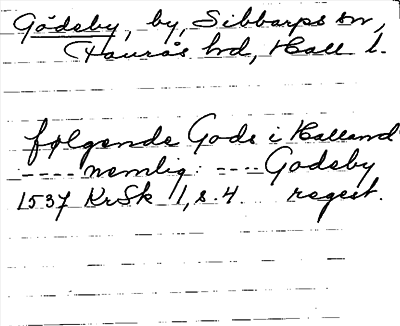 Gödeby, by, Sibbarps sn,
Faurås hd, Hall l.
følgende Gods i Halland
---- nemlig: ---- Godeby
1537 KrSk 1, s. 4 regest.